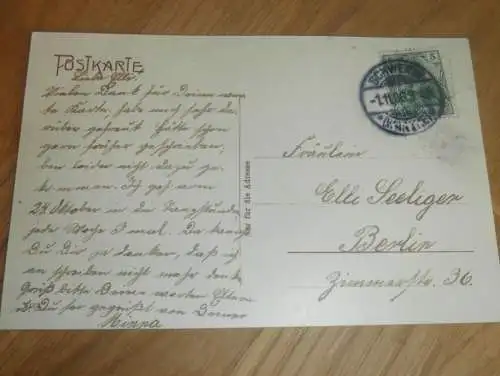 POSTKARTE
Liebe Elli!
Vielen Dank für Deine wer-
te Karte, habe mich sehr da-
rüber gefreut. Hätte schon
gern früher geschrieben,
bin leider nicht dazu ge-
kommen. Ich geh vom
24. Oktober in die Tanzstunde,
jede Woche 2 mal. Da kannst
Du Dir ja denken, daß ich
an schreiben nicht mehr denke.
Grüß bitte Deine werten Eltern
u. Du sei gegrüßt von Deiner
Minna
Nur für die Adresse
SCHWERIN
5
Fräulein
Elli Seeliger
Berlin
Zimmerstr. 36.